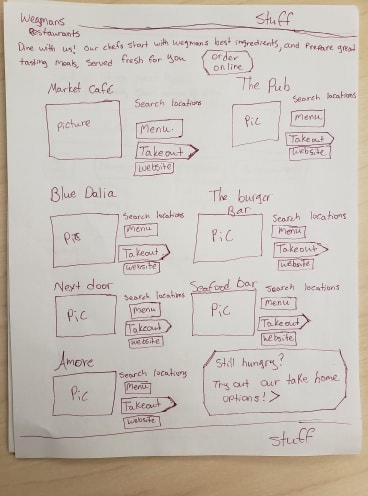 Wegmans
Restaurants
Stuff
Dine with us! Our chefs start with wegmans best ingredients, and prepare great
tasting meals, served fresh for you
order
online
Market Café
picture
Search locations
Menu
Takeout
website
The Pub
Pic
Search locations
Menu
Takeout
website
Blue Dalia
Pic
Search locations
Menu
Takeout
website
The burger
Bar
Pic
Search locations
Menu
Takeout
website
Next door
Pic
Search locations
Menu
Takeout
website
Seafood bar
Pic
Search locations
Menu
Takeout
website
Amore
Pic
Search locations
Menu
Takeout
website
Still hungry?
Try out our take home
options! >
Stuff